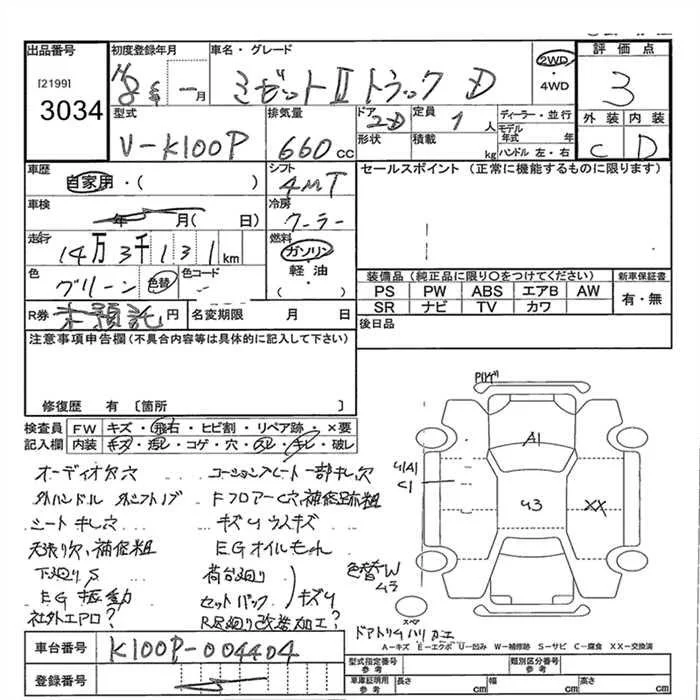 出品番号
[2199]
3034
初度登録年月
H8年 ー月
車名・グレード
ミゼットⅡトラック D
2WD
・
4WD
評価点
3
外装 内装
C D
型式
V-K100P
排気量
660 cc
ドア
2D
形状
定員
1人
積載
kg
ディーラー・並行
モデル年式 年
ハンドル 左・右
車歴
自家用・( )
シフト
4MT
セールスポイント(正常に機能するものに限ります)
車検
年 月( 日)
冷房
クーラー
走行
14万3千131km
燃料
ガソリン
・
軽油
・( )
色
グリーン
色替
色コード
装備品(純正品に限り○をつけてください)
PS PW ABS エアB AW
SR ナビ TV カワ
新車保証書
有・無
R券
未預託 円
名変期限 月 日
後日品
注意事項申告欄(不具合内容等は具体的に記入して下さい)
修復歴 有 〔箇所 〕
検査員記入欄
FW キズ・飛石・ヒビ割・リペア跡・×要
内装 キズ・汚レ・コゲ・穴・スレ・キレ・破レ
オーディオ欠穴
外ハンドル 外シフトノブ
シートキレ穴
天張り欠、補修粗
下廻りS
EG振動
社外エアロ?
コーションプレート一部キレ欠
Fフロアーく穴、補修跡粗
キズUウスキズ
EGオイルもれ
荷台廻り
セットバック
キズU
R足廻り改造加工?
Pハゲ
A1
U1A1
C1
U3
XX
色替W
ムラ
スペア
A-キズ E-エクボ U-凹み W-補修跡 S-サビ C-腐食 XX-交換済
車台番号
K100P-004404
登録番号
型式指定番号
参考
類別区分番号
参考
車庫証明用
参考
長さ cm
幅 cm
高さ cm